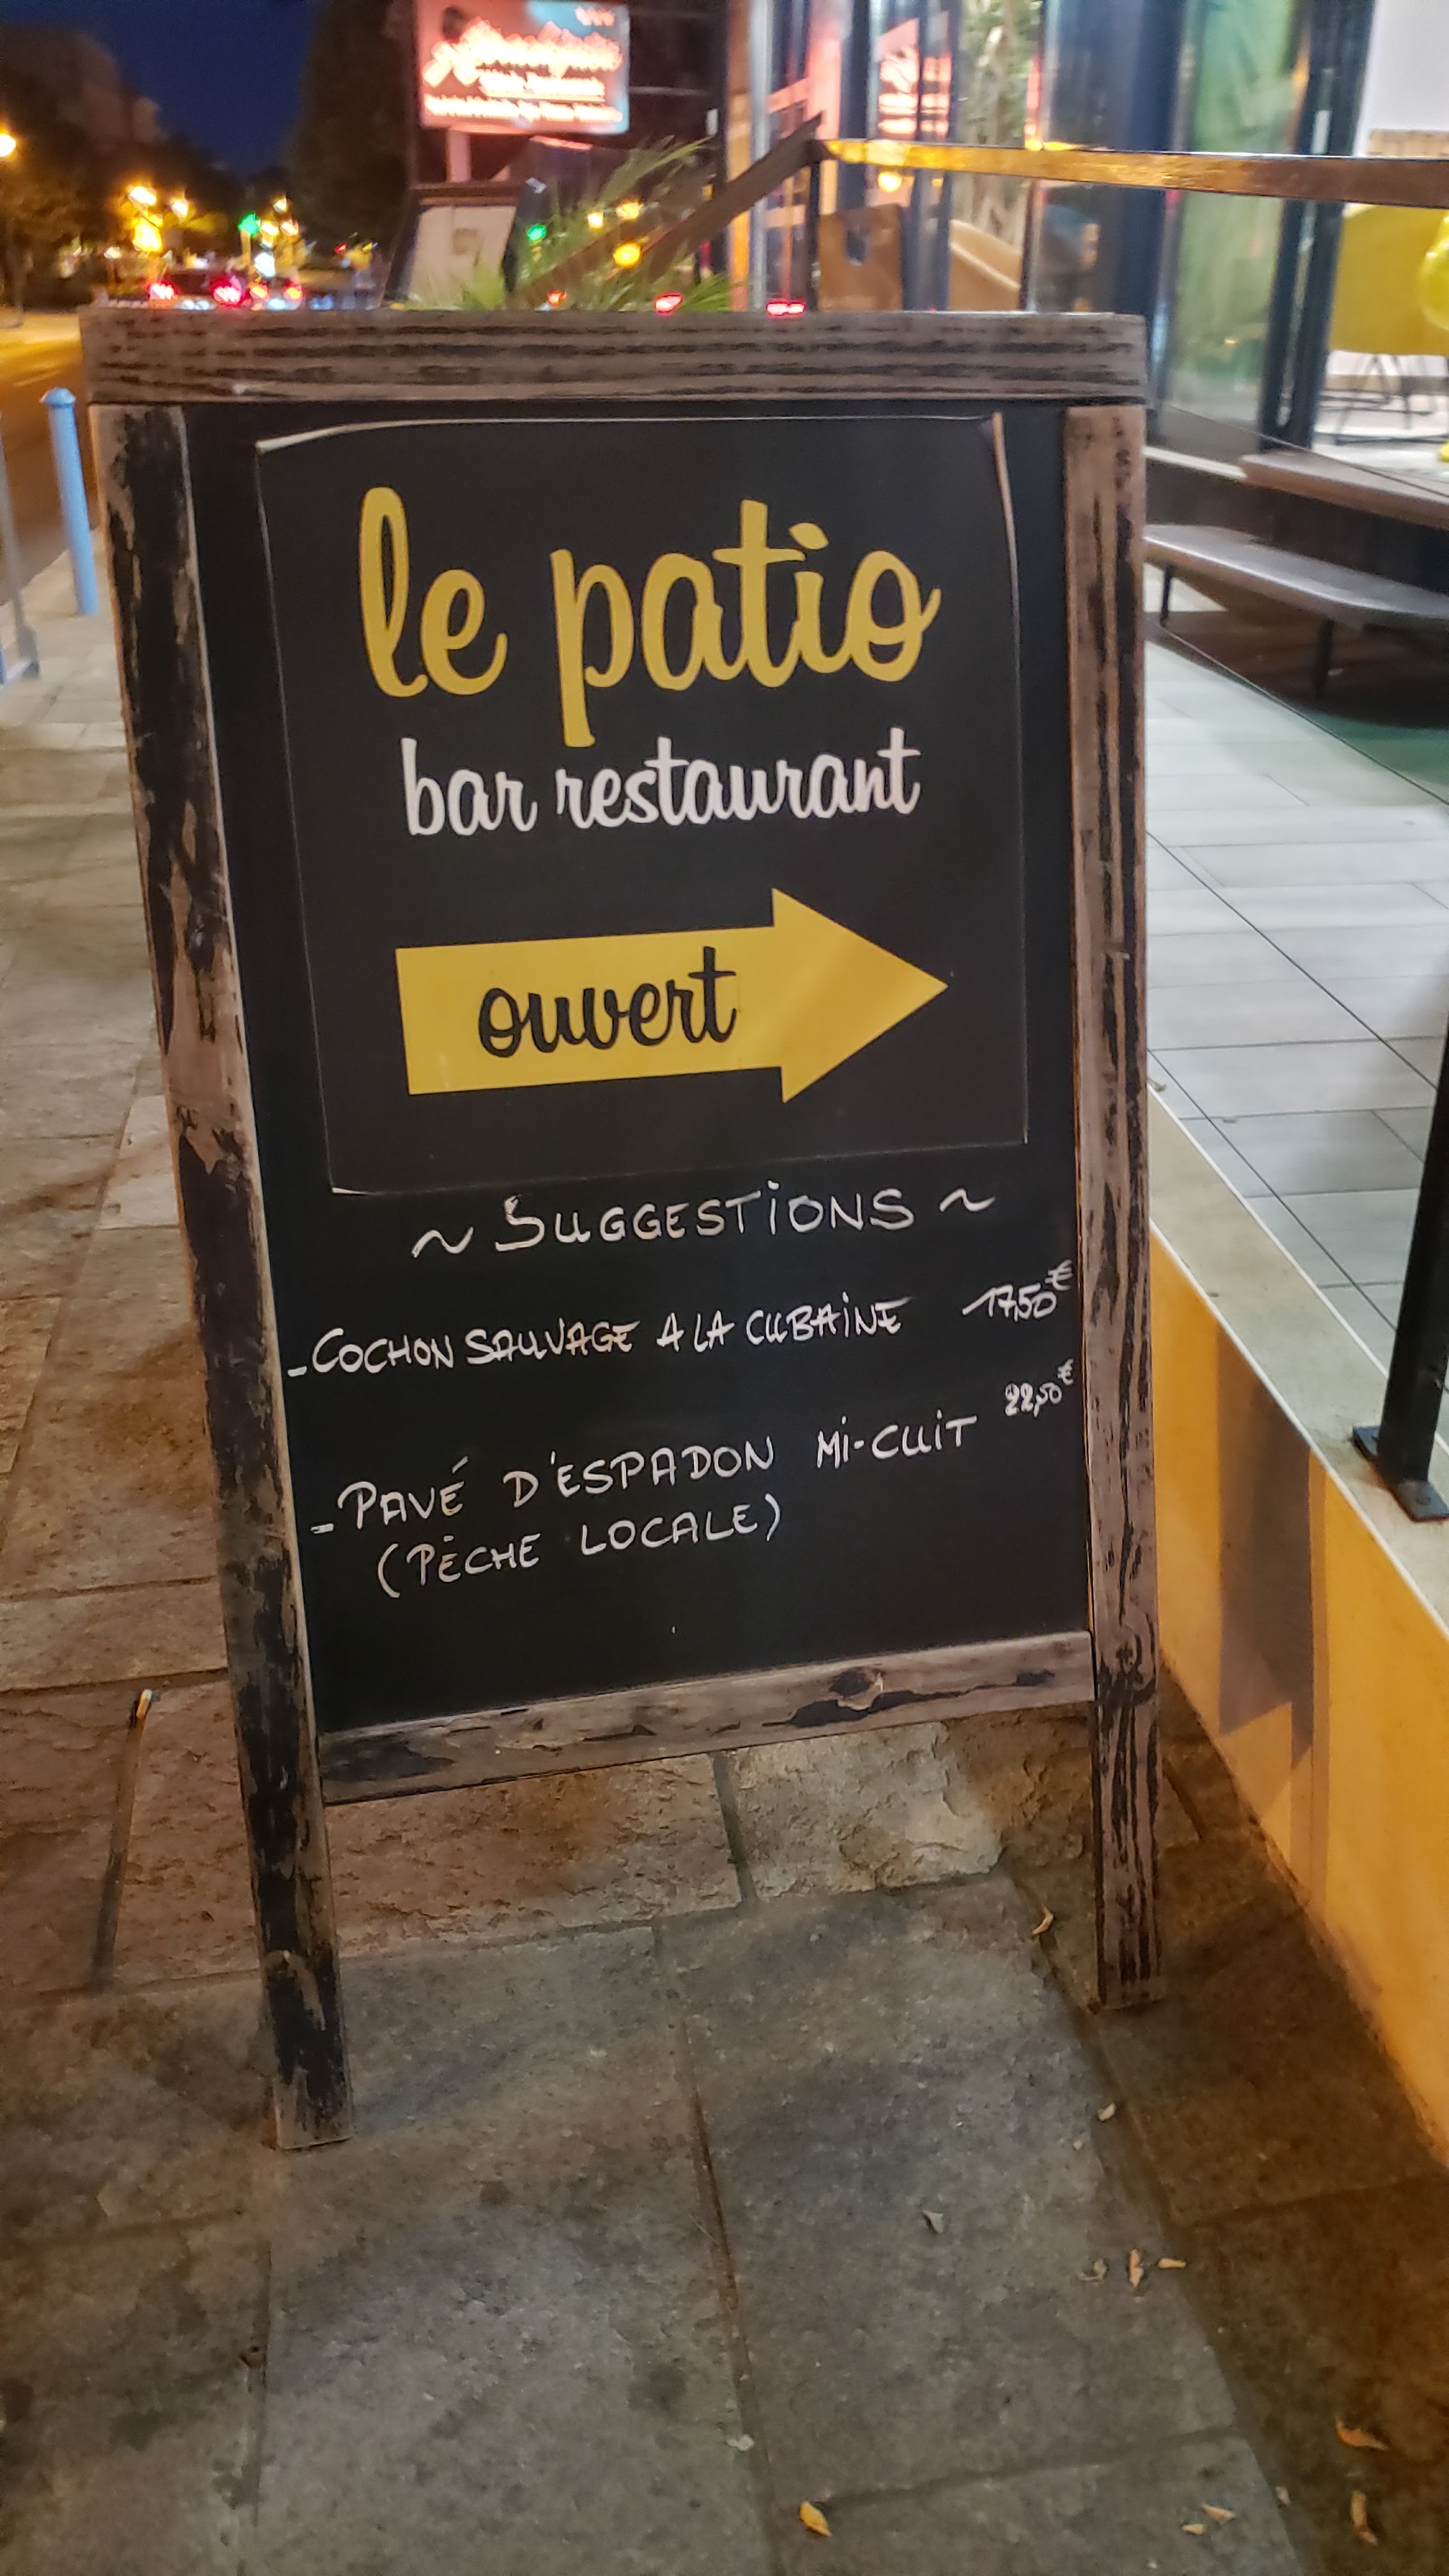 le patio
bar restaurant
ouvert
~ SUGGESTIONS ~
- COCHON SAUVAGE A LA CUBAINE 17,50€
- PAVÉ D'ESPADON MI-CUIT 22,50€
(PÊCHE LOCALE)